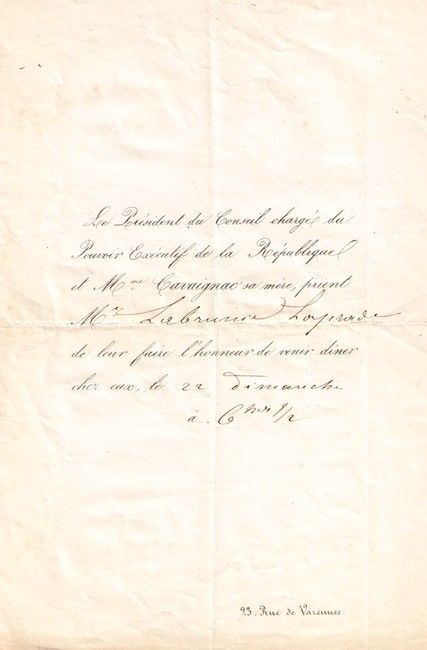 Le Président du Conseil chargé du
Pouvoir Exécutif de la République
et Mme Cavaignac sa mère, prient
Mr Labrunie Laprade
de leur faire l'honneur de venir dîner
chez eux, le 22 dimanche
à 6 hres 1/2
23, Rue de Varennes.